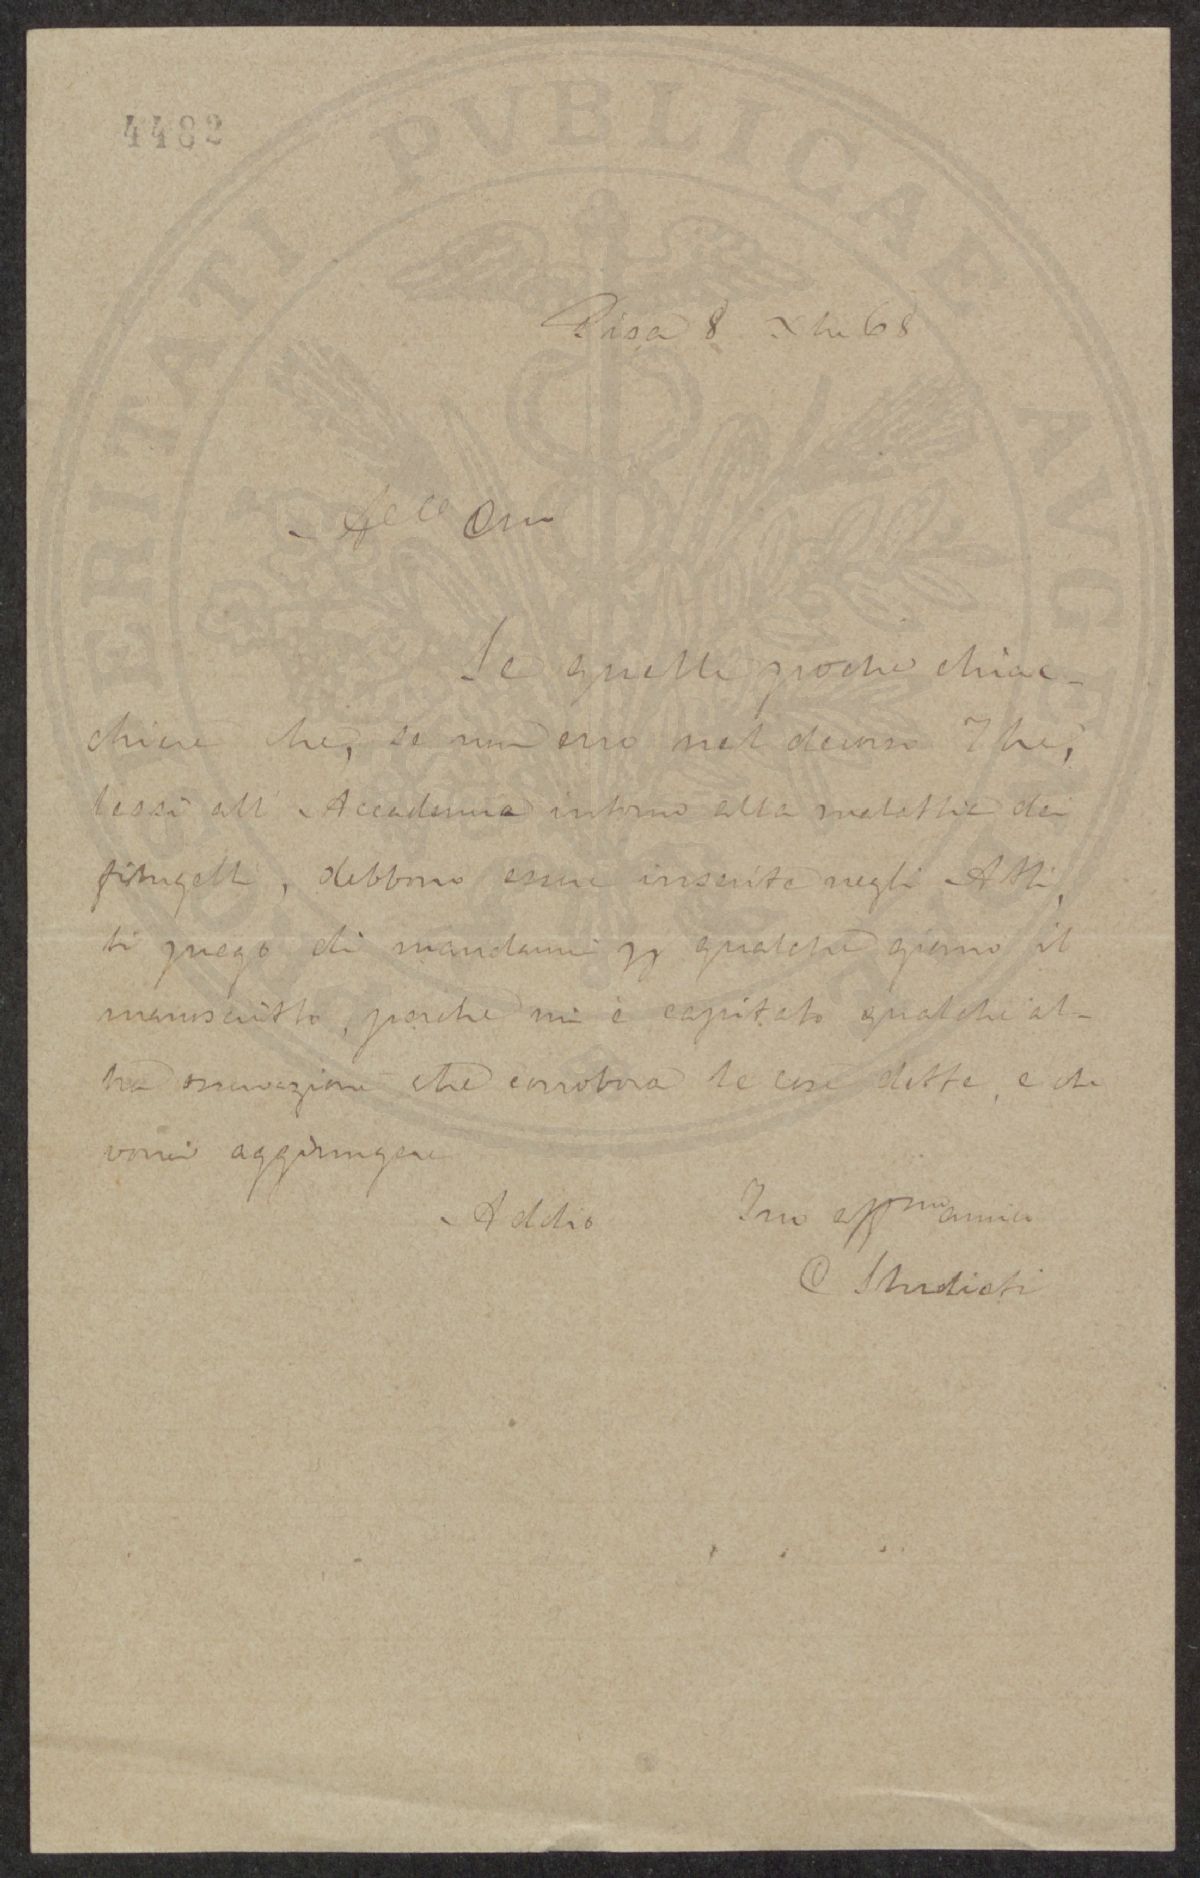 4482
PROSPERITATI PVBLICAE AVGENDAE
Pisa 8 Xbre 68
Amico
Se quelle poche chiac-
chiere che, se non erro nel decorso 7bre,
lessi all' Accademia intorno alla malattia dei
filugelli, debbono essere inserite negli Atti,
ti prego di mandarmi p qualche giorno il
manoscritto, perchè mi è capitato qualche al-
tra osservazione che corrobora le cose dette, e che
vorrei aggiungere
Addio
Tuo affmo amico
C Studiati